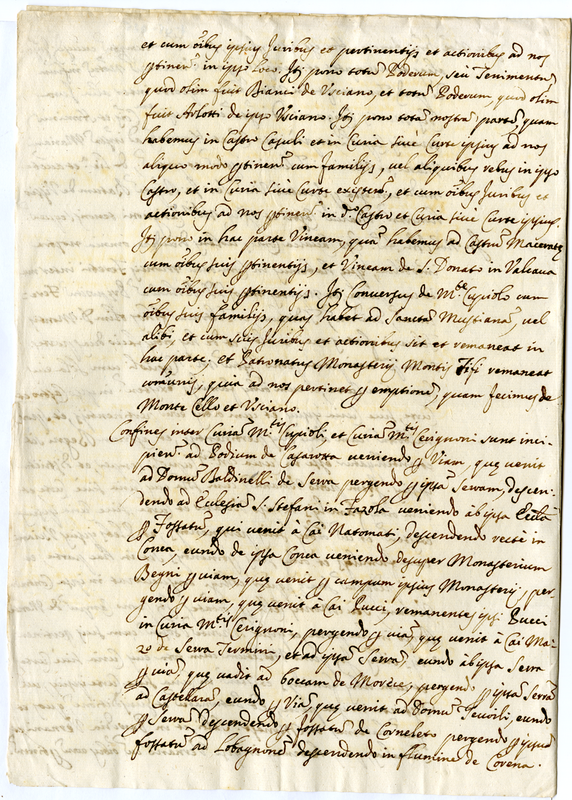 et cum oībus ipsius Juribus et pertinentijs et actionibus ad nos
ꝑtinen: in ipso loco. Itē pono totū Poderum, seu Tenimentū
quod olim fuit Bianci de Vsciano, et totū Poderum, quod olim
fuit Arlotti de ipso Vsciano. Itē pono totā nostrā partē quam
habemus in Castro Casuli et in Curia siuè Curte ipsius ad nos
aliquo modo ꝑtinen: cum familijs, uel aliquibus rebus in ipso
Castro, et in Curia siue Curte existen:, et cum oībus Juribus et
actionibus ad nos ꝑtinen: in dº Castro et Curia siue Curte ipsius.
Itē pono in hac parte Vineam, quā habemus ad Castrū Maceratę
cum oībus suis ꝑtinentijs, et Vineam de S. Donato in Valcaua
cum oībus suis ꝑtinentijs. Itē Conuersus de M.te Cupiolo cum
oībus suis familijs, quas habet ad Sanctā Mustianā, uel
alibi, et cum suis Juribus et actionibus sit et remaneat in
hac parte, et Patronatus Monasterij Montis remaneat
comunis, quia ad nos pertinet ꝑ emptionē quam fecimus de
Monte Cello et Vsciano.
Confines inter Curiā M.tis Cupioli, et Curiā M.tis Cerignoni sunt inci-
pien: ad Podium de Casarotta ueniendo ꝑ Viam, quę uenit
ad Domū Baldinelli de Serra pergendo ꝑ ipsā Serram, descen-
dendo ad Ecclesiā S. Stefani in Fazola ueniendo àb ipsa Ecclā
ꝑ Fossatū, qui uenit à Cài Natomati, descendendo rectè in
Conca, eundo de ipsa Conca ueniendo desuper Monasterium
Begni ꝑ uiam, quę uenit ꝑ campum ipsius Monasterij, per-
gendo ꝑ uiam, quę uenit à Cài Bucci, remanentes ipsi Bucci
in Curia M.tis Cerignoni, pergendo ꝑ uiā, quę uenit à Cài Mai-
zo de Serra et ad ipsā Serrā, eundo àb ipsa Serra
ꝑ uiā, quę uadit ad boccam de Morece, pergendo ꝑ ipsam Serrā
ad Castellarā, eundo ꝑ Viā, quę uenit ad Domū eundo
ꝑ Serrā descendendo ꝑ fossatū de Corneleto pergendo ꝑ ipsum
fossatū ad Lobagnonē descendendo in flumine de Couena.